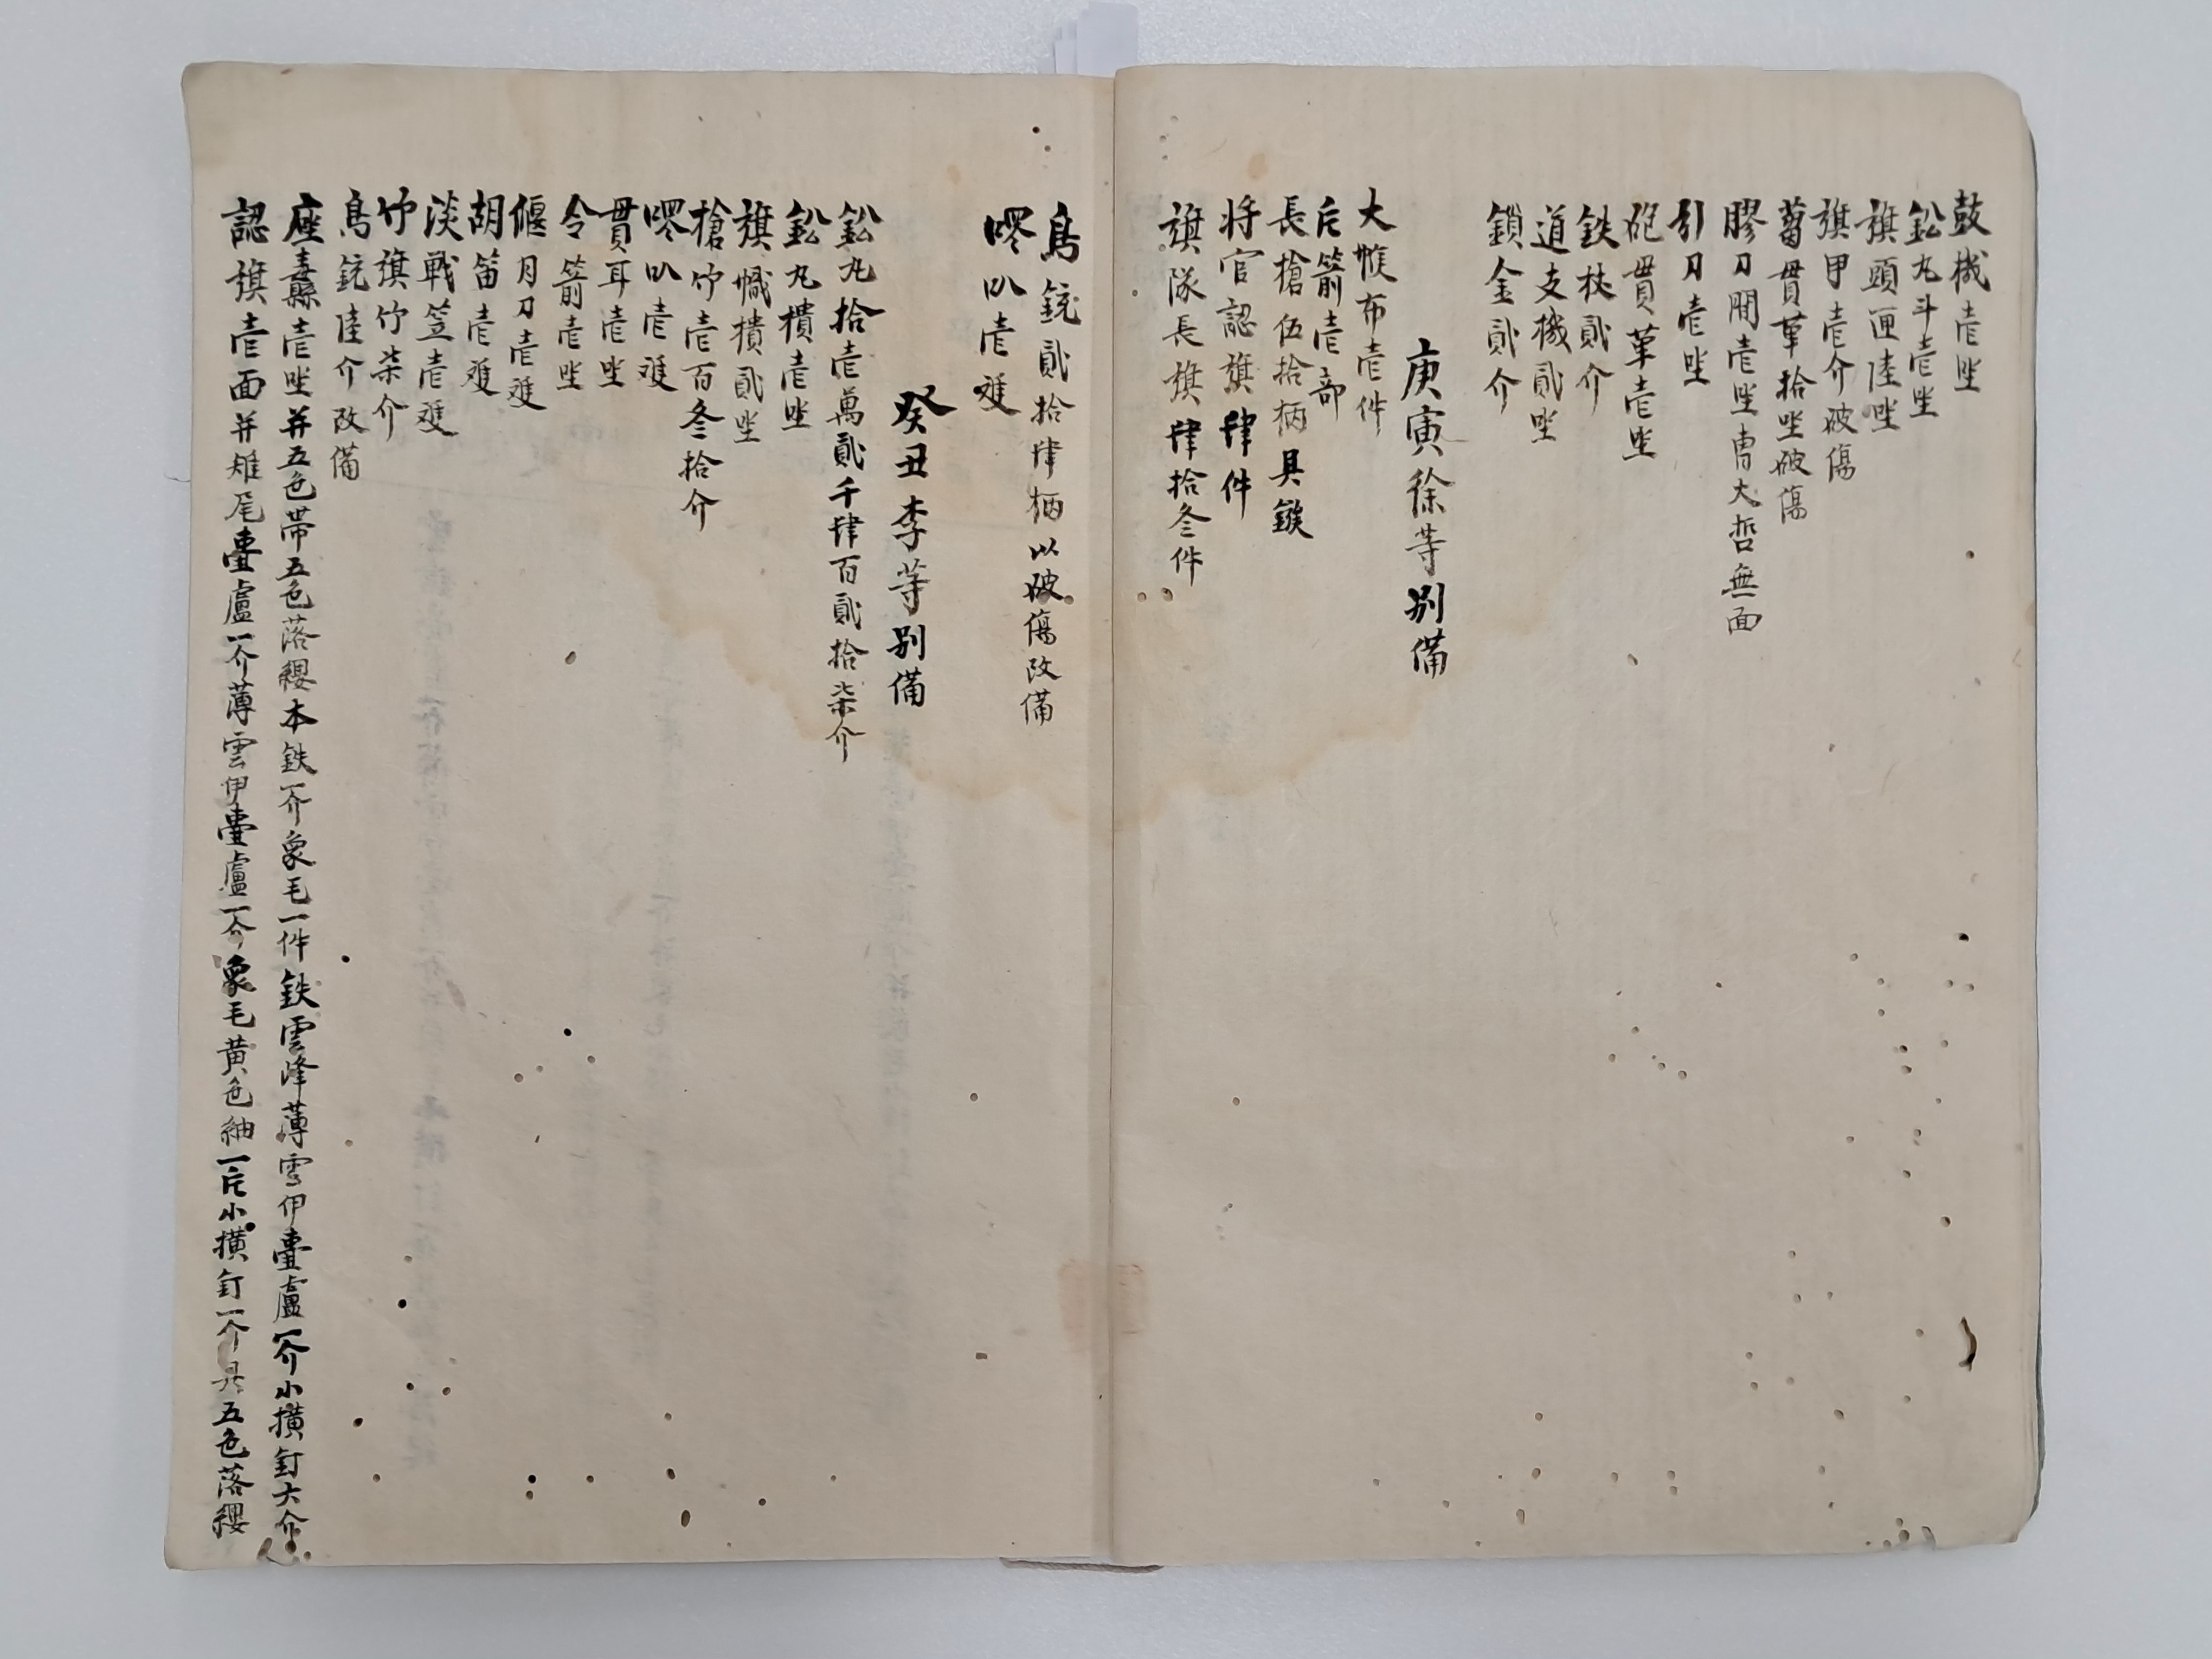 鼓機壱坐
鈆丸斗壱坐
旗頭匣陸坐
旗甲壱介破傷
蓄貫革拾坐破傷
膠刀閒壱坐曺大哲無面
引刀壱坐
砲貫革壱坐
鉄杖貳介
道支機貳坐
鎖金貳介
庚寅徐等別備
大帿布壱件
片箭壱部
長槍伍拾柄具鏃
将官認旗肆件
旗隊長旗肆拾叁件
鳥銃貳拾肆柄以破傷改備
啰叺壱雙
癸丑李等別備
鈆丸拾壱萬貳千肆百貳拾柒介
鈆丸樻壱坐
旗幟樻貳坐
槍竹壱百叁拾介
啰叺壱雙
貫耳壱坐
令箭壱坐
偃月刀壱雙
胡笛壱雙
淡戰笠壱雙
竹旗竹柒介
鳥銃陸介改備
座纛壱坐并五色帶五色落纓本鉄一介象毛一件鉄雲峰薄雲伊壺盧一介小横釘六介
認旗壱面并雉尾壺盧一介薄雲伊壺盧一介象毛黄色紬一片小横釘一个具五色落纓